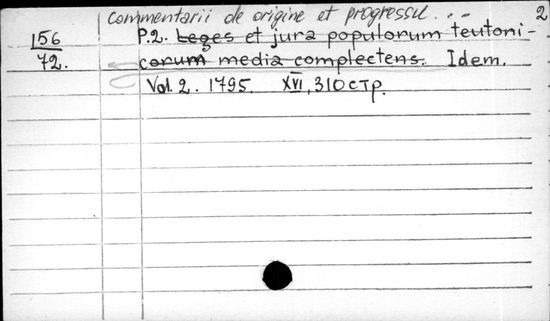 commentarii de origine et progressu... 2
156 P.2. Leges et jura populorum teutoni-
72. corum media complectens. Idem.
Vol. 2. 1795. XVI, 310 стр.